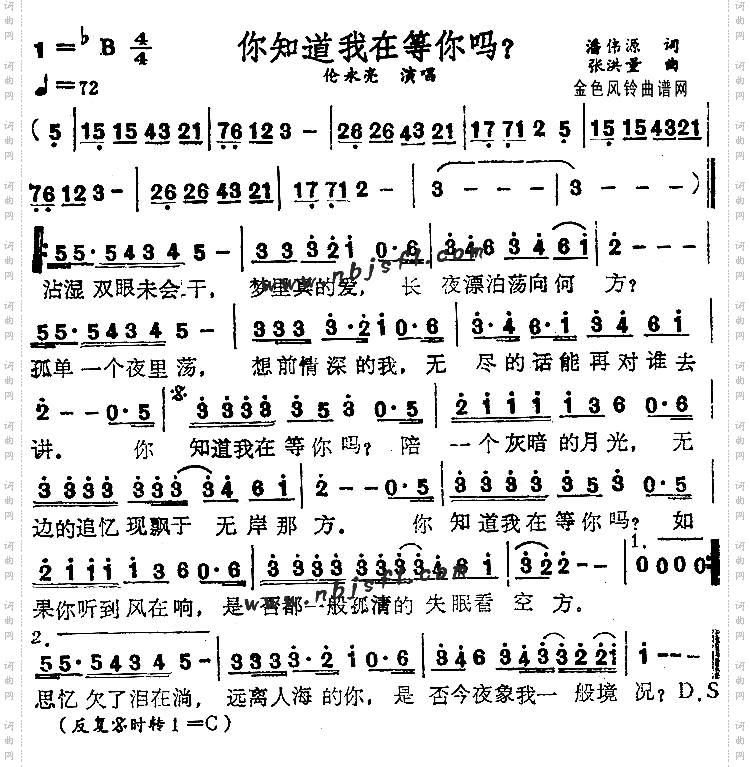 1=♭B 4/4 你知道我在等你吗? 潘伟源 词
♩=72 伦永亮 演唱 张洪量 曲
金色风铃曲谱网
(5 | 15 15 43 21 | 76 12 3 - | 26 26 43 21 | 17 71 2 5 | 15 15 43 21 |
76 12 3 - | 26 26 43 21 | 17 71 2 - | 3 - - - | 3 - - - ) ‖
‖: 55·5434 5 - | 3 3 3 2 1 0·6 | 3 4 6 3 4 6 1 | 2 - - - |
沾湿 双眼未会干, 梦里真的爱, 长 夜漂泊荡向何 方?
55·5434 5 - | 333 3·2 1 0·6 | 3·4 6·1 3 4 6 1 |
孤单一个夜里荡, 想前情深的我, 无 尽的话能再对谁去
2 - - 0·5 | 3333 353 0·5 | 2111 136 0·6 |
讲. 你 知道我在等你吗? 陪 一个灰暗的月光, 无
3333 333 3 4 6 1 | 2 - - 0·5 | 3333 353 0·5 |
边的追忆现飘于 无岸那方. 你 知道我在等你吗? 如
2111 136 0·6 | 3333 333 346 1 | 322 - - | 1. 0000 :‖
果你听到风在响, 是否都一般孤清的失眠看 空方.
2.
55·5434 5 - | 333 3·2 1 0·6 | 346 34 33221 | 1 - - ‖
思忆欠了泪在淌, 远离人海的你, 是 否今夜象我一般境 况? D.S
(反复𝄋时转1=C)
www.nbjsfl.com
www.nbjsfl.com
词曲网